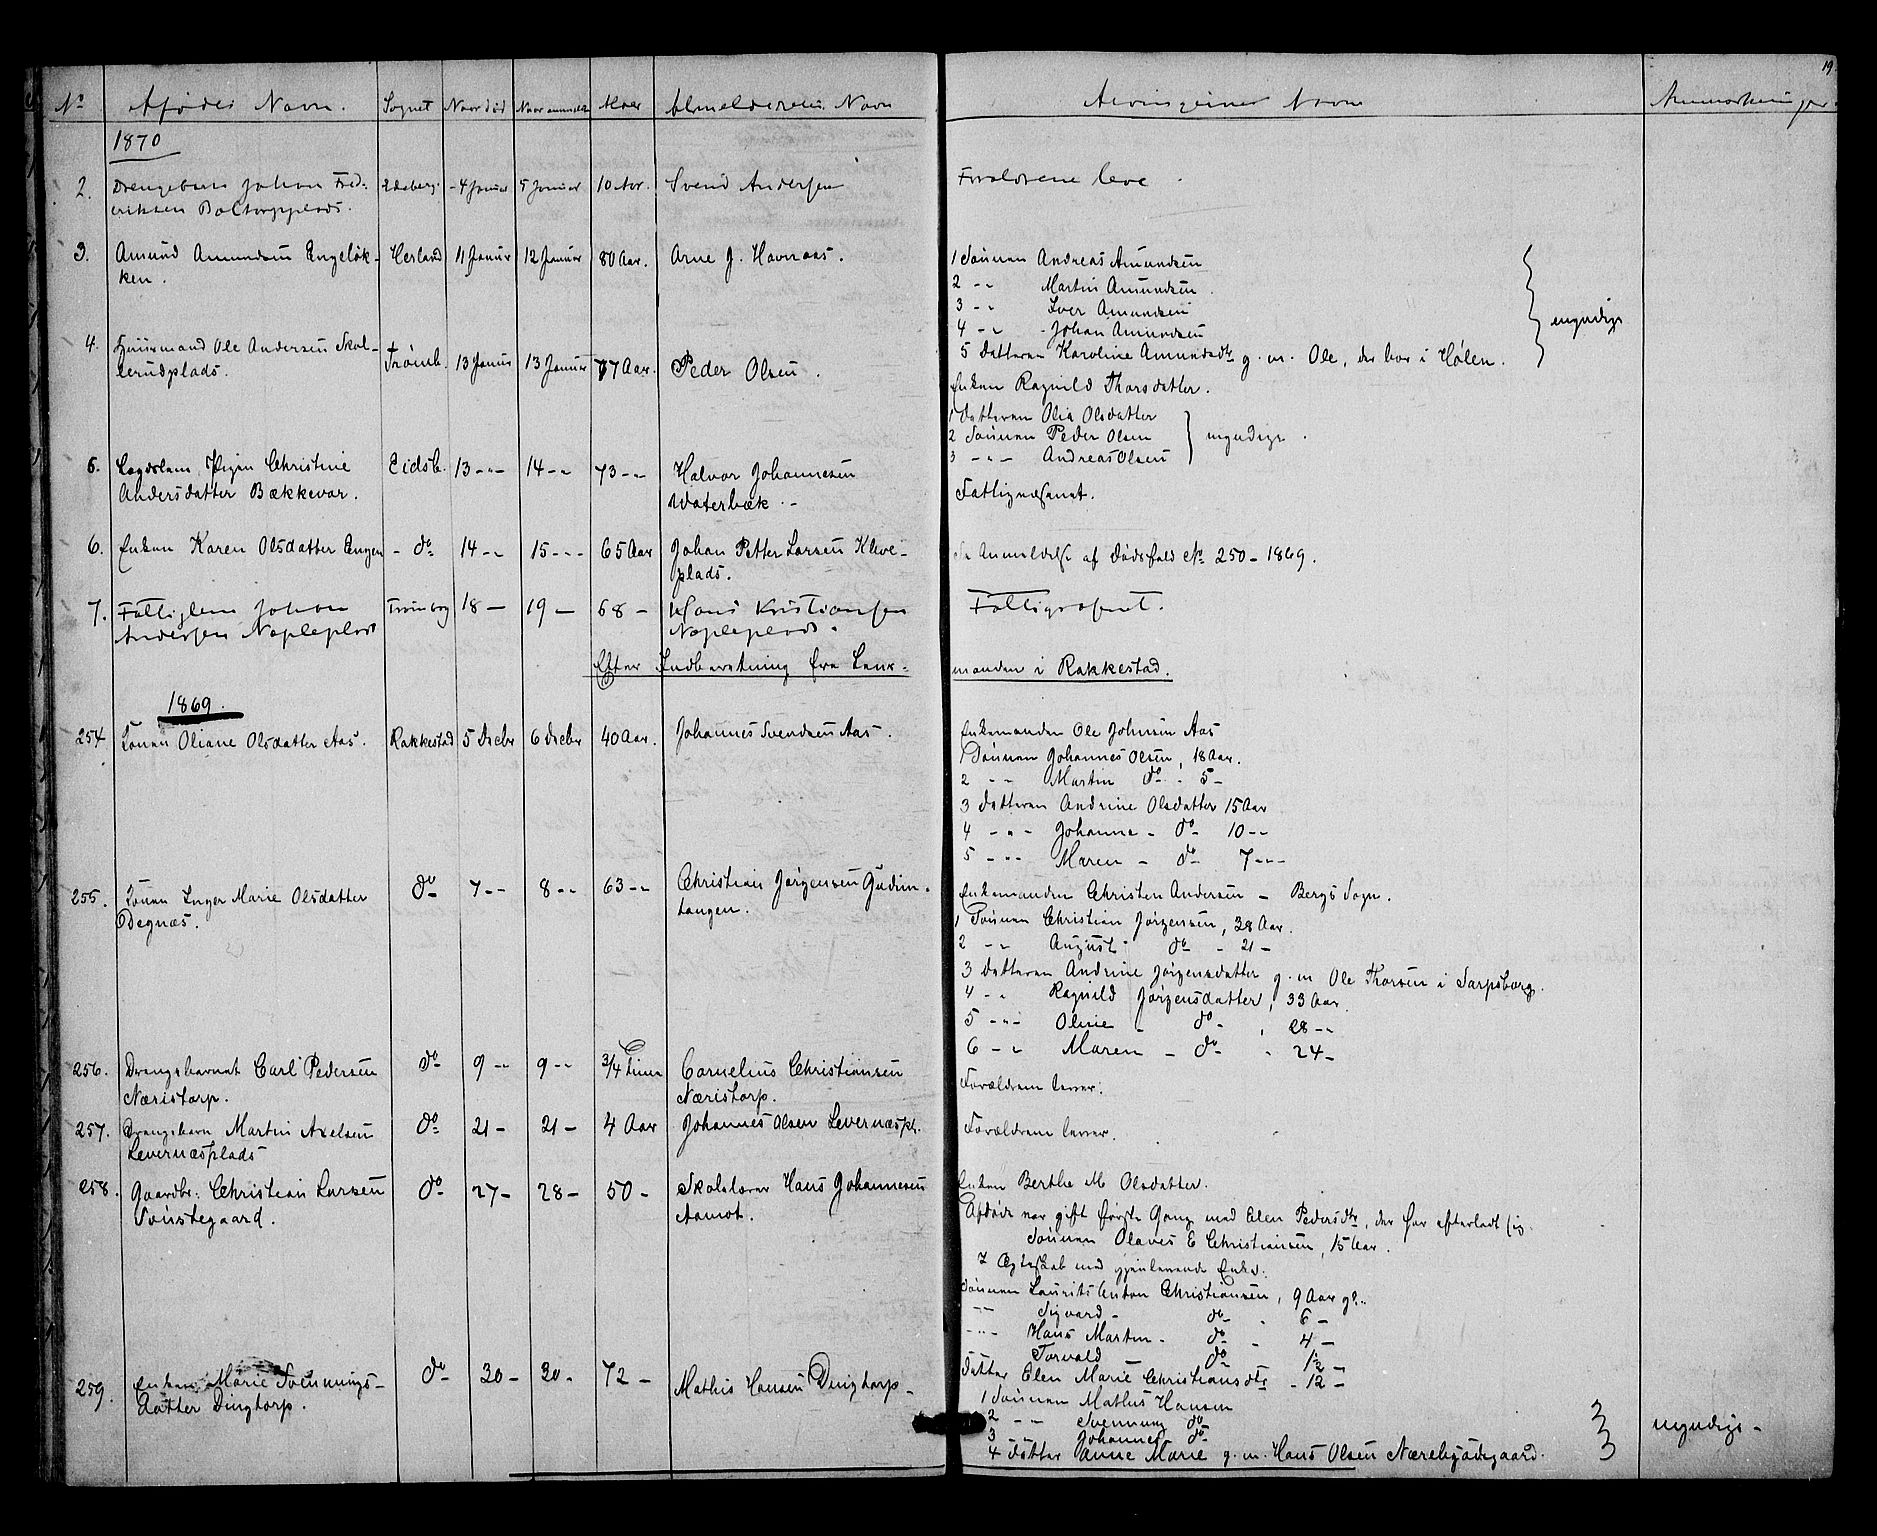 19.
No Afdødes Navn. Sognet Naar død Naar anmeldt Alder Anmelderens Navn Arvingernes Navne Anmærkninger.
1870
2. Drengebarn Johan Fred- Edsberg. 4 Januar 5 Januar 10 Svend Andersen Forældrene leve.
eriksen
3. Amund Amundsen Engeløk- Herland 11 Januar 12 Januar 80 Aar. Arne J. Havnaas. 1 Sønnen Andreas Amundsen
ken. 2 -"- Martin Amundsen.
3 -"- Iver Amundsen
4 -"- Johan Amundsen myndige
5 Datteren Karoline Amundsdtr g. m. Ole, der bor i Hølen.
4. Huusmand Ole Andersen Skol- Trømb. 13 Januar 13 Januar 77 Aar. Peder Olsen. Enken Ragnild Thorsdatter.
lerudplads. 1 Datteren Olia Olsdatter
2 Sønnen Peder Olsen myndige.
3 -"- Andreas Olsen
5. Lægdslem, Pigen Christine Eidsb. 13 -"- 14 -"- 73 -"- Halvor Johannesen Fattigvæsenet.
Andersdatter Bækkevar. Waterbæk.
6. Enken Karen Olsdatter Engen - do 14 -"- 15 -"- 65 Aar Johan Petter Larsen Kleve- Se Anmeldelse af Dødsfald No 250 - 1869.
plads.
7. Fattiglem Johan Trømborg 18 - 19 - 68 - Hans Kristiansen Fattigvæsenet.
Andersen Næpleplads Næpleplads.
Efter Indberetning fra Lens- manden i Rakkestad.
1869.
254 Konen Oliane Olsdatter Aas. Rakkestad 5 Decbr 6 Decbr 40 Aar. Johannes Svendsen Aas. Enkemanden Ole Johnsen Aas
1 Sønnen Johannes Olsen, 18 Aar.
2 -"- Martin do - 5 -
3 Datteren Andrine Olsdatter 15 Aar
4 -"- Johanne - do 10 -"-
5 -"- Maren - do 7 -"-
255. Konen Inger Marie Olsdatter do 7 -"- 8 -"- 63 -"- Christian Jørgensen Gudim- Enkemanden Christen Andersen - Bergs Sogn.
Degnæs. tangen. 1 Sønnen Christian Jørgensen, 38 Aar.
2 -"- August do - 21 -
3 Datteren Andrine Jørgensdatter g. m Ole Thorsen i Sarpsborg.
4 -"- Ragnild Jørgensdatter, 33 Aar
5 -"- Oline - do - , 28 -"-
6 -"- Maren - do - 24 -
256. Drengebarnet Carl Pedersen do 9 -"- 9 -"- 3/4 Time Cornelius Christiansen Forældrene lever.
Næristorp. Næristorp.
257. Drengebarn Martin Axelsen do 21 - 21 - 4 Aar Johannes Olsen Levernæspl. Forældrene lever.
Levernæsplads
258. Gaardbr. Christian Larsen do 27 - 28 - 50 - Skolelærer Hans Johannesen Enken Berthe M Olsdatter.
Sønstegaard. Aamot. Afdøde var gift første Gang med Elen Pedersdtr, der har efterladt sig
Sønnen Olaves E Christiansen, 15 Aar.
I Ægteskab med gjenlevende Enke:
Sønnen Laurits Anton Christiansen, 9 Aar gl.
-"- Sigvard - do - 6 -
-"- Hans Martin - do - 4 -
Torvald do 1½ -
Datter Elen Marie Christiansdtr - 12 -
259. Enken Marie Svennings- do 30 - 30 - 72 - Mathis Hansen Dingtorp - 1 Sønnen Mathis Hansen
datter Dingtorp. 2 -"- Svenning do
3 Johannes do myndige -
4 Datter Anne Marie g. m. Hans Olsen Nærebyødegaard.